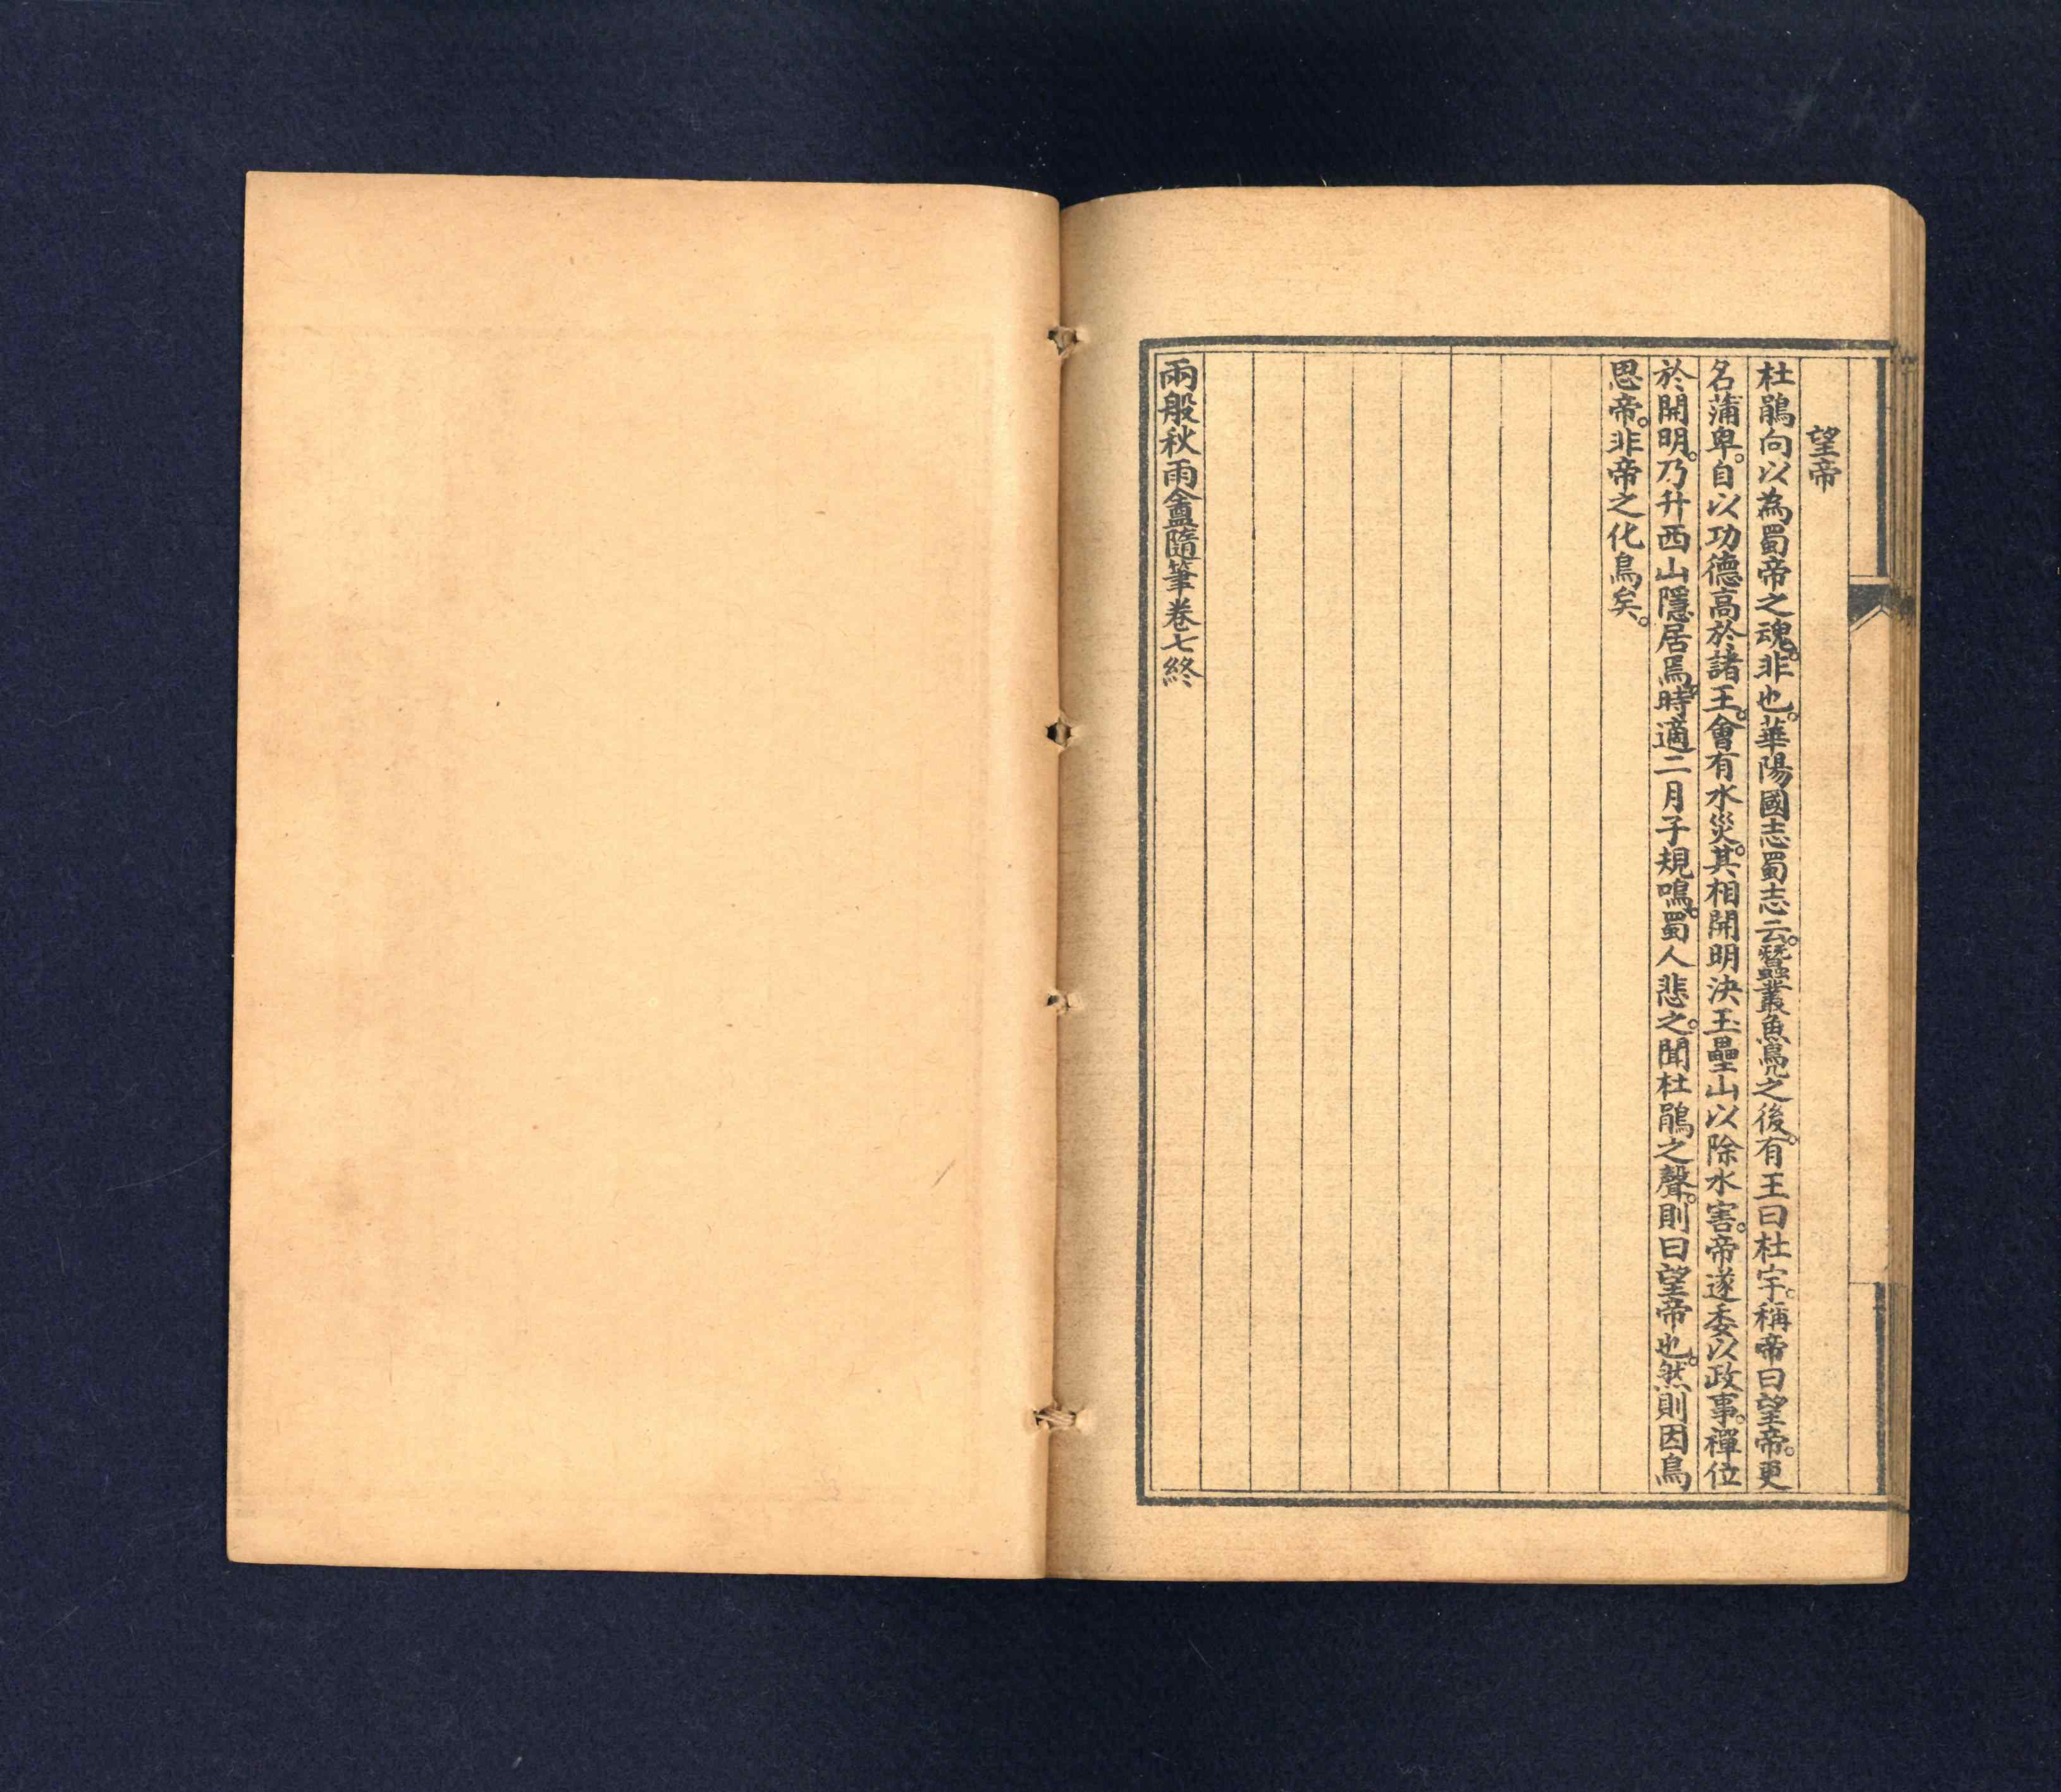 望帝
杜鵑向以為蜀帝之魂。非也。華陽國志蜀志云。蠶叢魚鳧之後。有王曰杜宇。稱帝曰望帝。更
名蒲卑。自以功德高於諸王。會有水災。其相開明決玉壘山以除水害。帝遂委以政事。禪位
於開明。乃升西山隱居焉。時適二月子規鳴。蜀人悲之。聞杜鵑之聲。則曰望帝也。然則因鳥
思帝。非帝之化鳥矣。
兩般秋雨盦隨筆卷七終